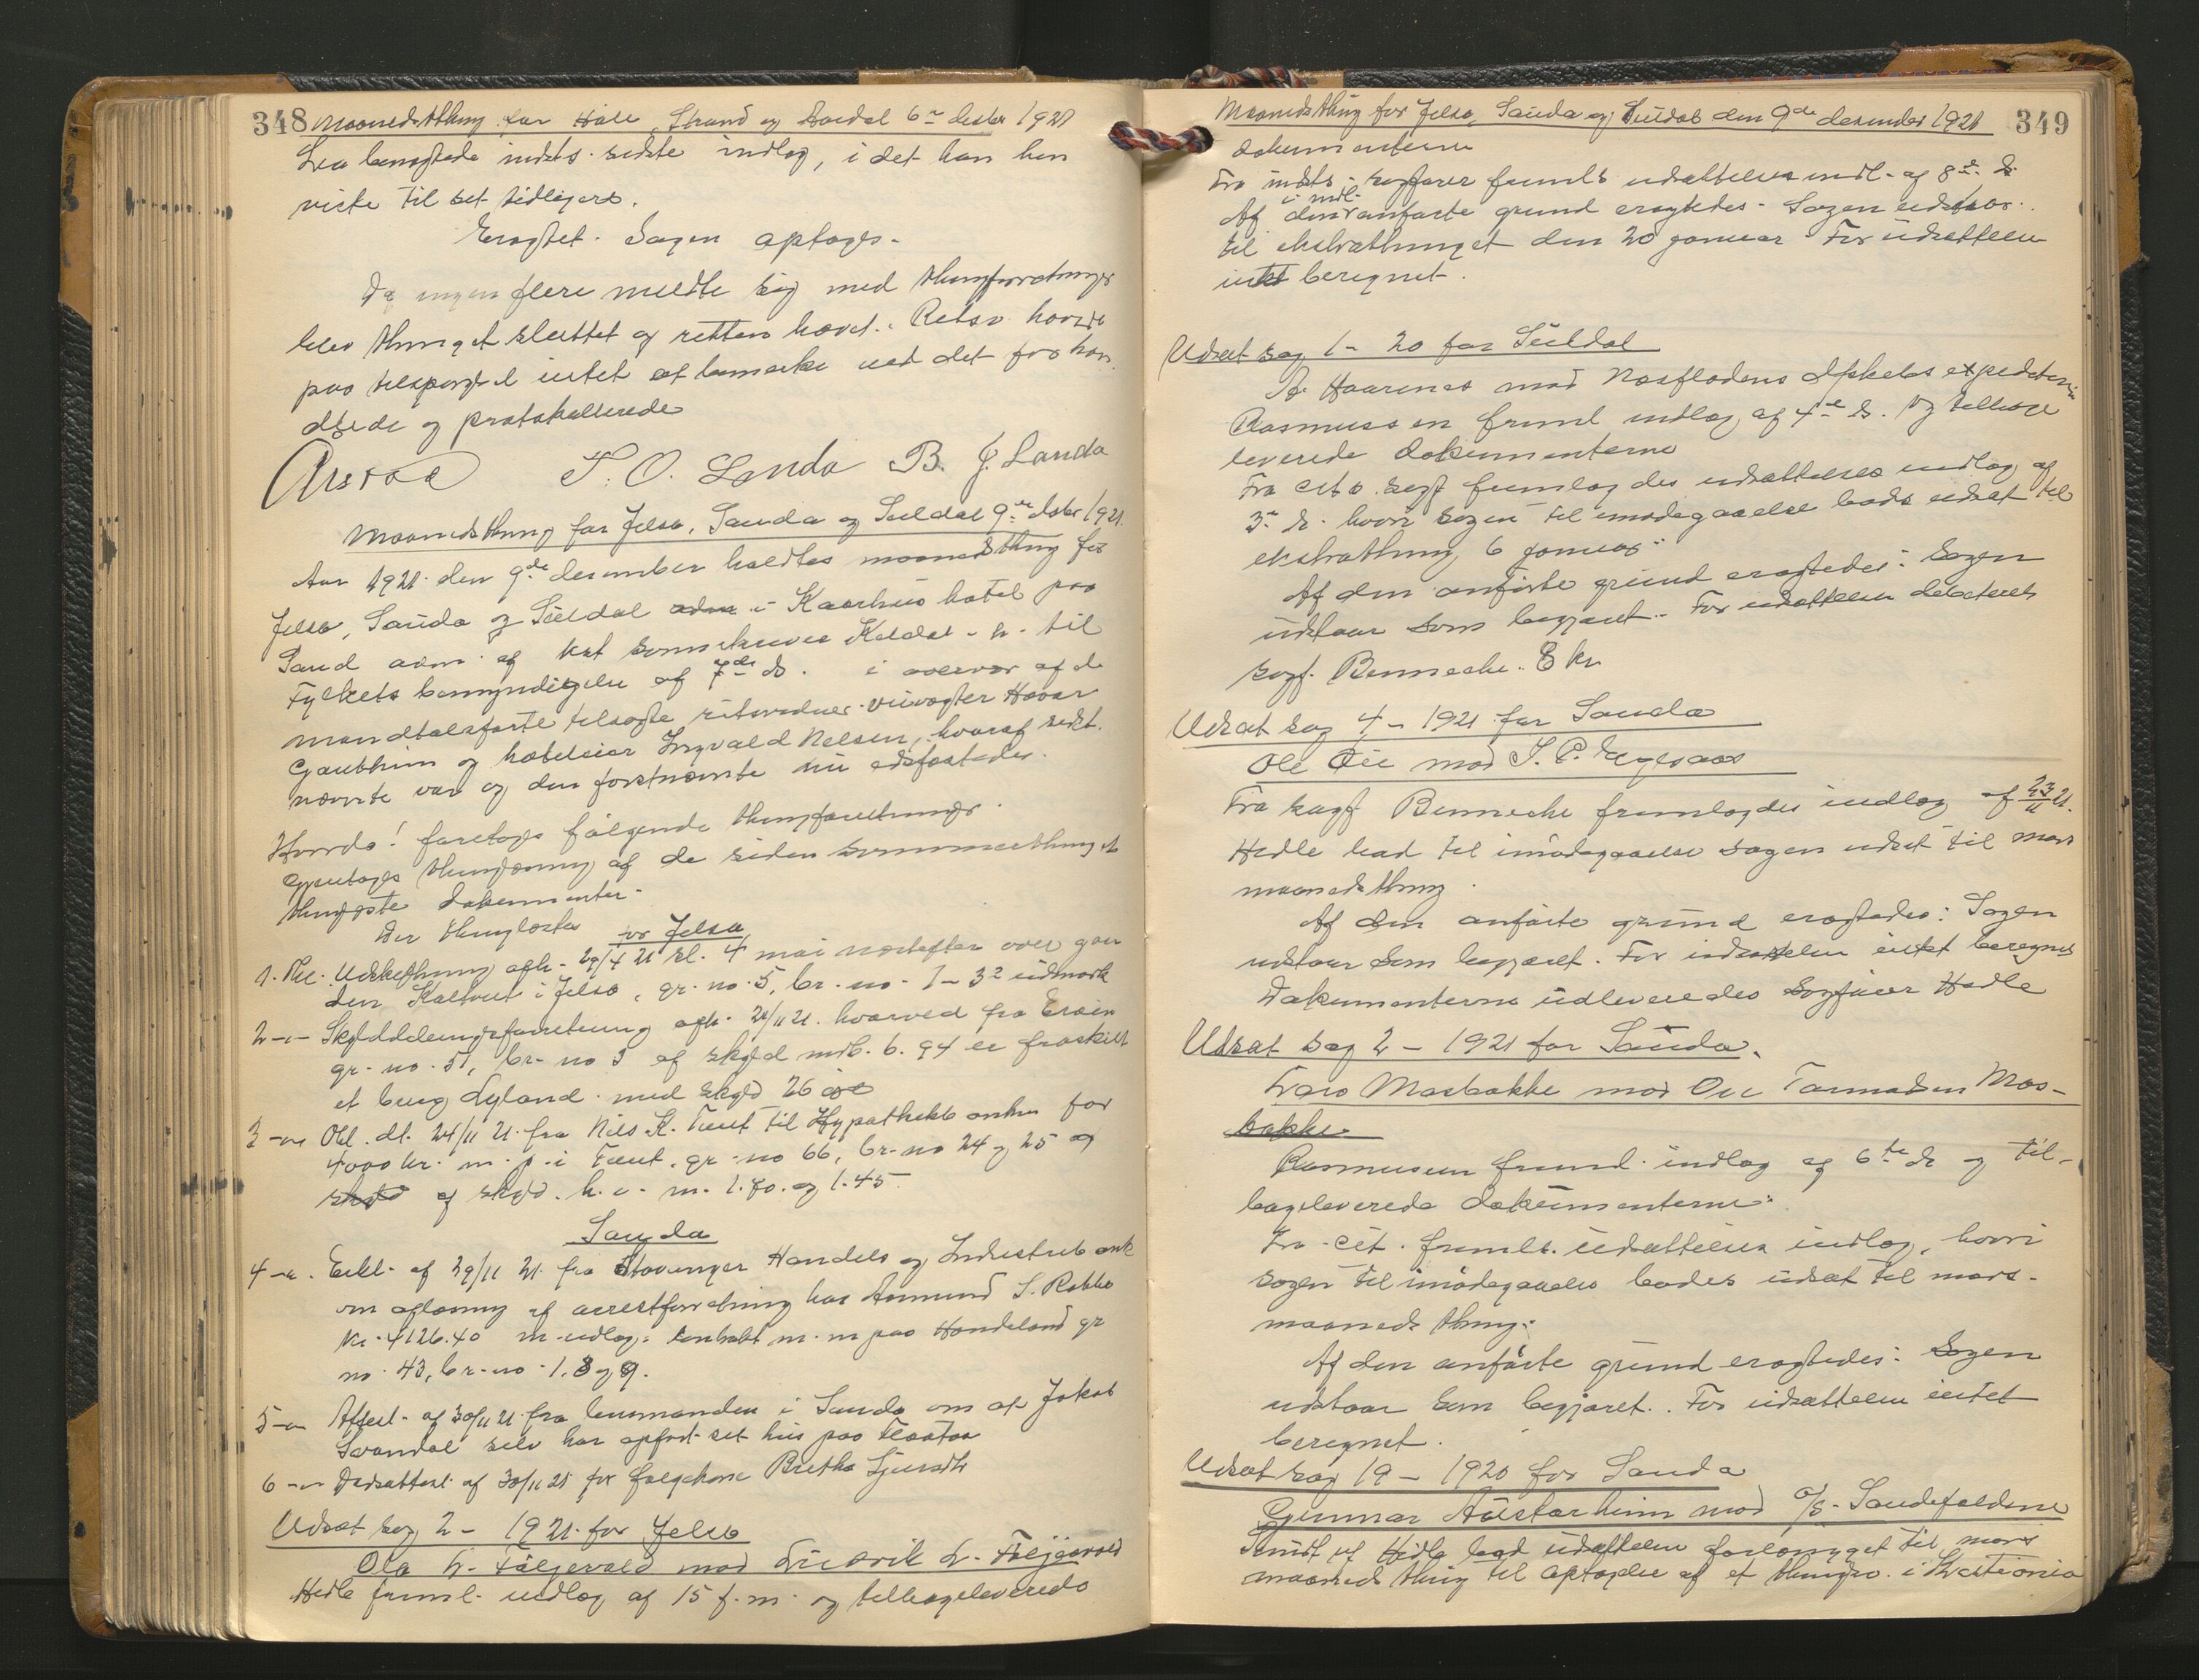 348 Maanedsthing for Hole, Strand og Aardal 6te desbr 1921
Lea benegtede indsts. sidste indlæg, i det han hen
viste til set tidligere.
Eragtet. Sagen optages.
Da ingen flere meldte sig med thingforretninger
blev thinget sluttet og retten hævet. Retsv. havde
paa tilspørgsel intet at bemærke ved det forhan
dlede og protokollerede
T. O. Landa B. J. Landa
Maanedsthing for Jelsø, Sauda og Suldal 9de desbr 1921.
Aar 1921 den 9de desember holdtes maanedsthing for
Jelsø, Sauda og Suldal i Kaarhus hotel paa
Sand adm. af kst. sorenskriver Koldal h. til
Fylkets bemyndigelse af 7de ds. i overvær af de
mandtalsførte tilsagte retsvidner Haar
Gautheim og hoteleier Ingvald Nelsen, hvoraf sidst-
nævnte var og den førstnævnte nu edfæstedes.
Hvorda! foretoges følgende thingforretninger.
Foretoges thinglæsning af de siden sommerthinget
thinglyste dokumenter.
Der thinglæstes for Jelsø
1. Thl. Udskiftning afh. 29/4 21 sl. 4 mai næstefter over gaar
den Kaltveit i Jelsø, gr. no. 5, br. no. 1-32 udmark
2 -"- Skylddelingsforretning afh. 21/11 21. hvorved fra Eroin
gr. no. 51, br. no 3 af skyld mrk. 6.94 er fraskilt
et brug Lyland med skyld 26 øre
3 -"- Obl. dt. 24/11 21. fra Nils K. Tveit til Hypothekbanken for
4000 kr. m. p. i Tveit, gr. no 66, br. no 24 og 25 og
skyld af skyld. h. v. m. 1.70. og 1.45.
Sauda
4 -"- Erkl. af 29/11 21. fra Stavanger Handels og Industribank
om aflæsning af arrestforretning hos Aamund S. Rabbe
kr. 4126.40 m. udlæg: kontrakt m. m paa Handeland gr
no. 43, br. no. 1, 8 og 9.
5 -"- Attest. af 30/11 21. fra lensmanden i Sauda om at Jakob
Svandal selv har opført set hus paa Fløatoa
6 -"- Dødsattest. af 30/11 21 for folgekone Brettha
Udsat sag 2 - 1921. for Jelsø
Ola L. Føljesvold mod Ludvik L. Føljesvold
Hidle freml. indlæg af 15 f. m. og tilbageleverede
Maanedsthing for Jelsø, Sauda og Suldal den 9de desember 1921 349
dokumenterne
Fra indsts. sagfører fremls udsættelsesindl. af 8de ds.
i indl.
Af den anførte grund eragtedes. Sagen udstaar
til ekstrathinget den 20 januar. For udsættelsen
intet beregnet.
Udsat sag 1 - 20 for Suldal
A. Haarenes mod Nesflodens Dpskbs expedeten:
Rasmussen freml indlæg af 4de ds. og tilbage
leverede dokumenterne
Fra cits. sagf fremlagdes udsættelses indlæg af
3de ds. hvori sagen til imødegaaelse bads udsat til
ekstrathing 6 januar.
Af den anførte grund eragtedes: Sagen
udstaar som begjæret. For udsættelsen debeteres
sagf. Bennecke. 8 kr
Udsat sag 4 - 1921 for Sauda
Ole Øie mod
Fra sagf Bennecke fremlagdes indlæg af 23/11 21.
Hidle bad til imødegaaelse sagen udsat til mars
maanedsthing.
Af den anførte grund eragtedes: Sagen
udstaar som begjæret. For udsættelsen intet beregnes
Dokumenterne udleveredes Sagfører Hidle
Udsat sag 2 - 1921 for Sauda.
Lars Mosbakke mod Ole Tormodsen Mos-
bakke
Rasmussen freml. indlæg af 6te ds og til-
bageleverede dokumenterne.
Fra cit. fremls. udsættelses indlæg, hvori
sagen til imødegaaelse bades udsat til mars-
maanedsthing.
Af den anførte grund eragtedes: Sagen
udstaar som begjæret. For udsættelsen intet
beregnet.
Udsat sag 19 - 1920 for Sauda
Gunnar Austarheim mod A/S Saudefaldene
Hidle bad udsættelsen forlænget til mars
maanedsthing til optagelse af et thingsv. i Kristiania